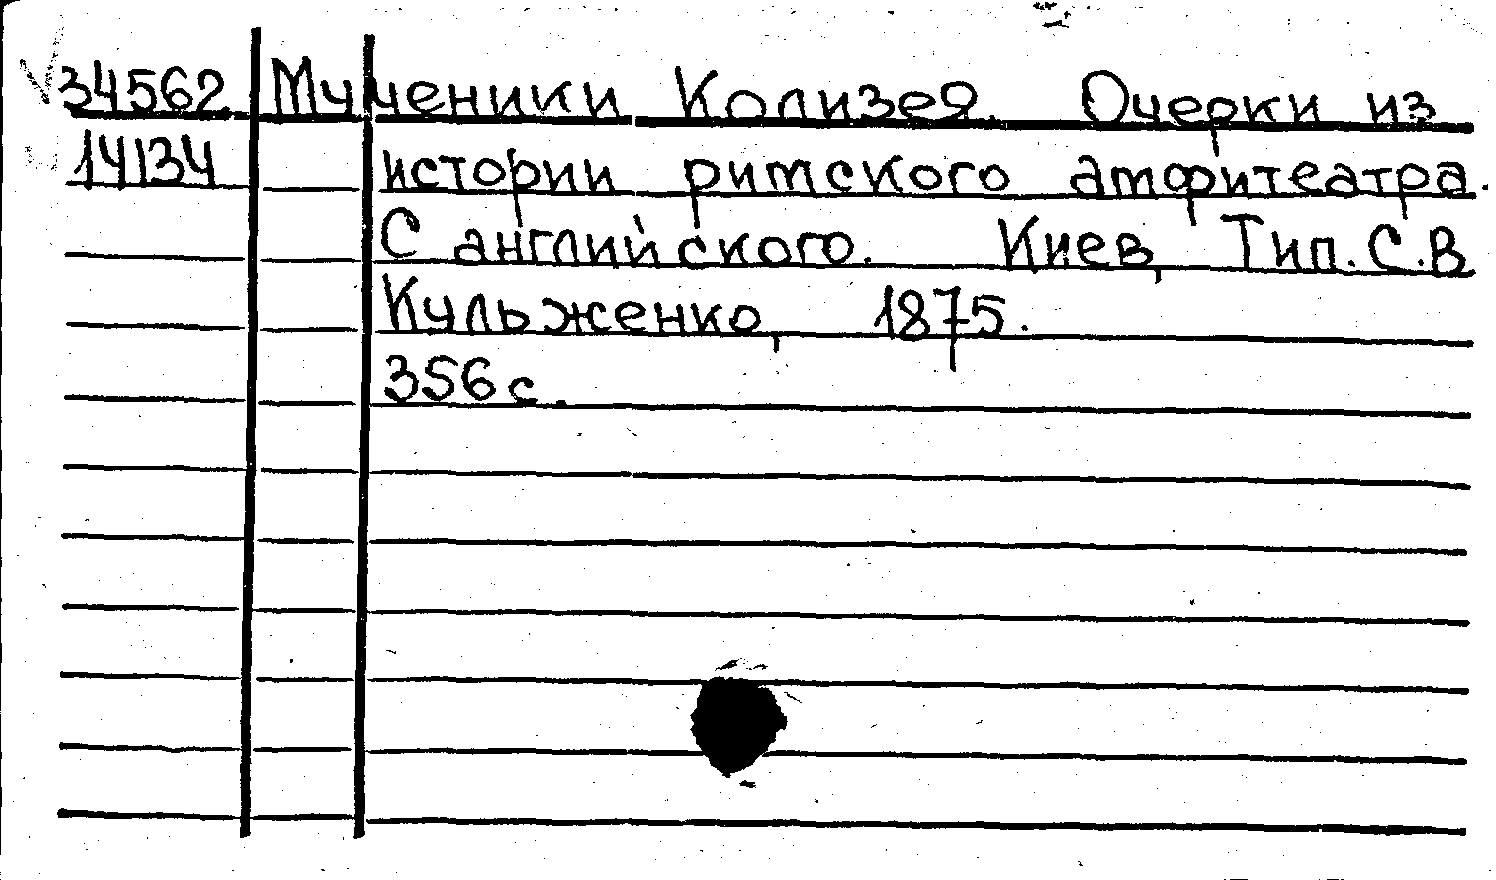 34562 Мученики Колизея. Очерки из
14134 истории римского амфитеатра.
С английского. Киев, Тип. С.В
Кульженко, 1875.
356 с.